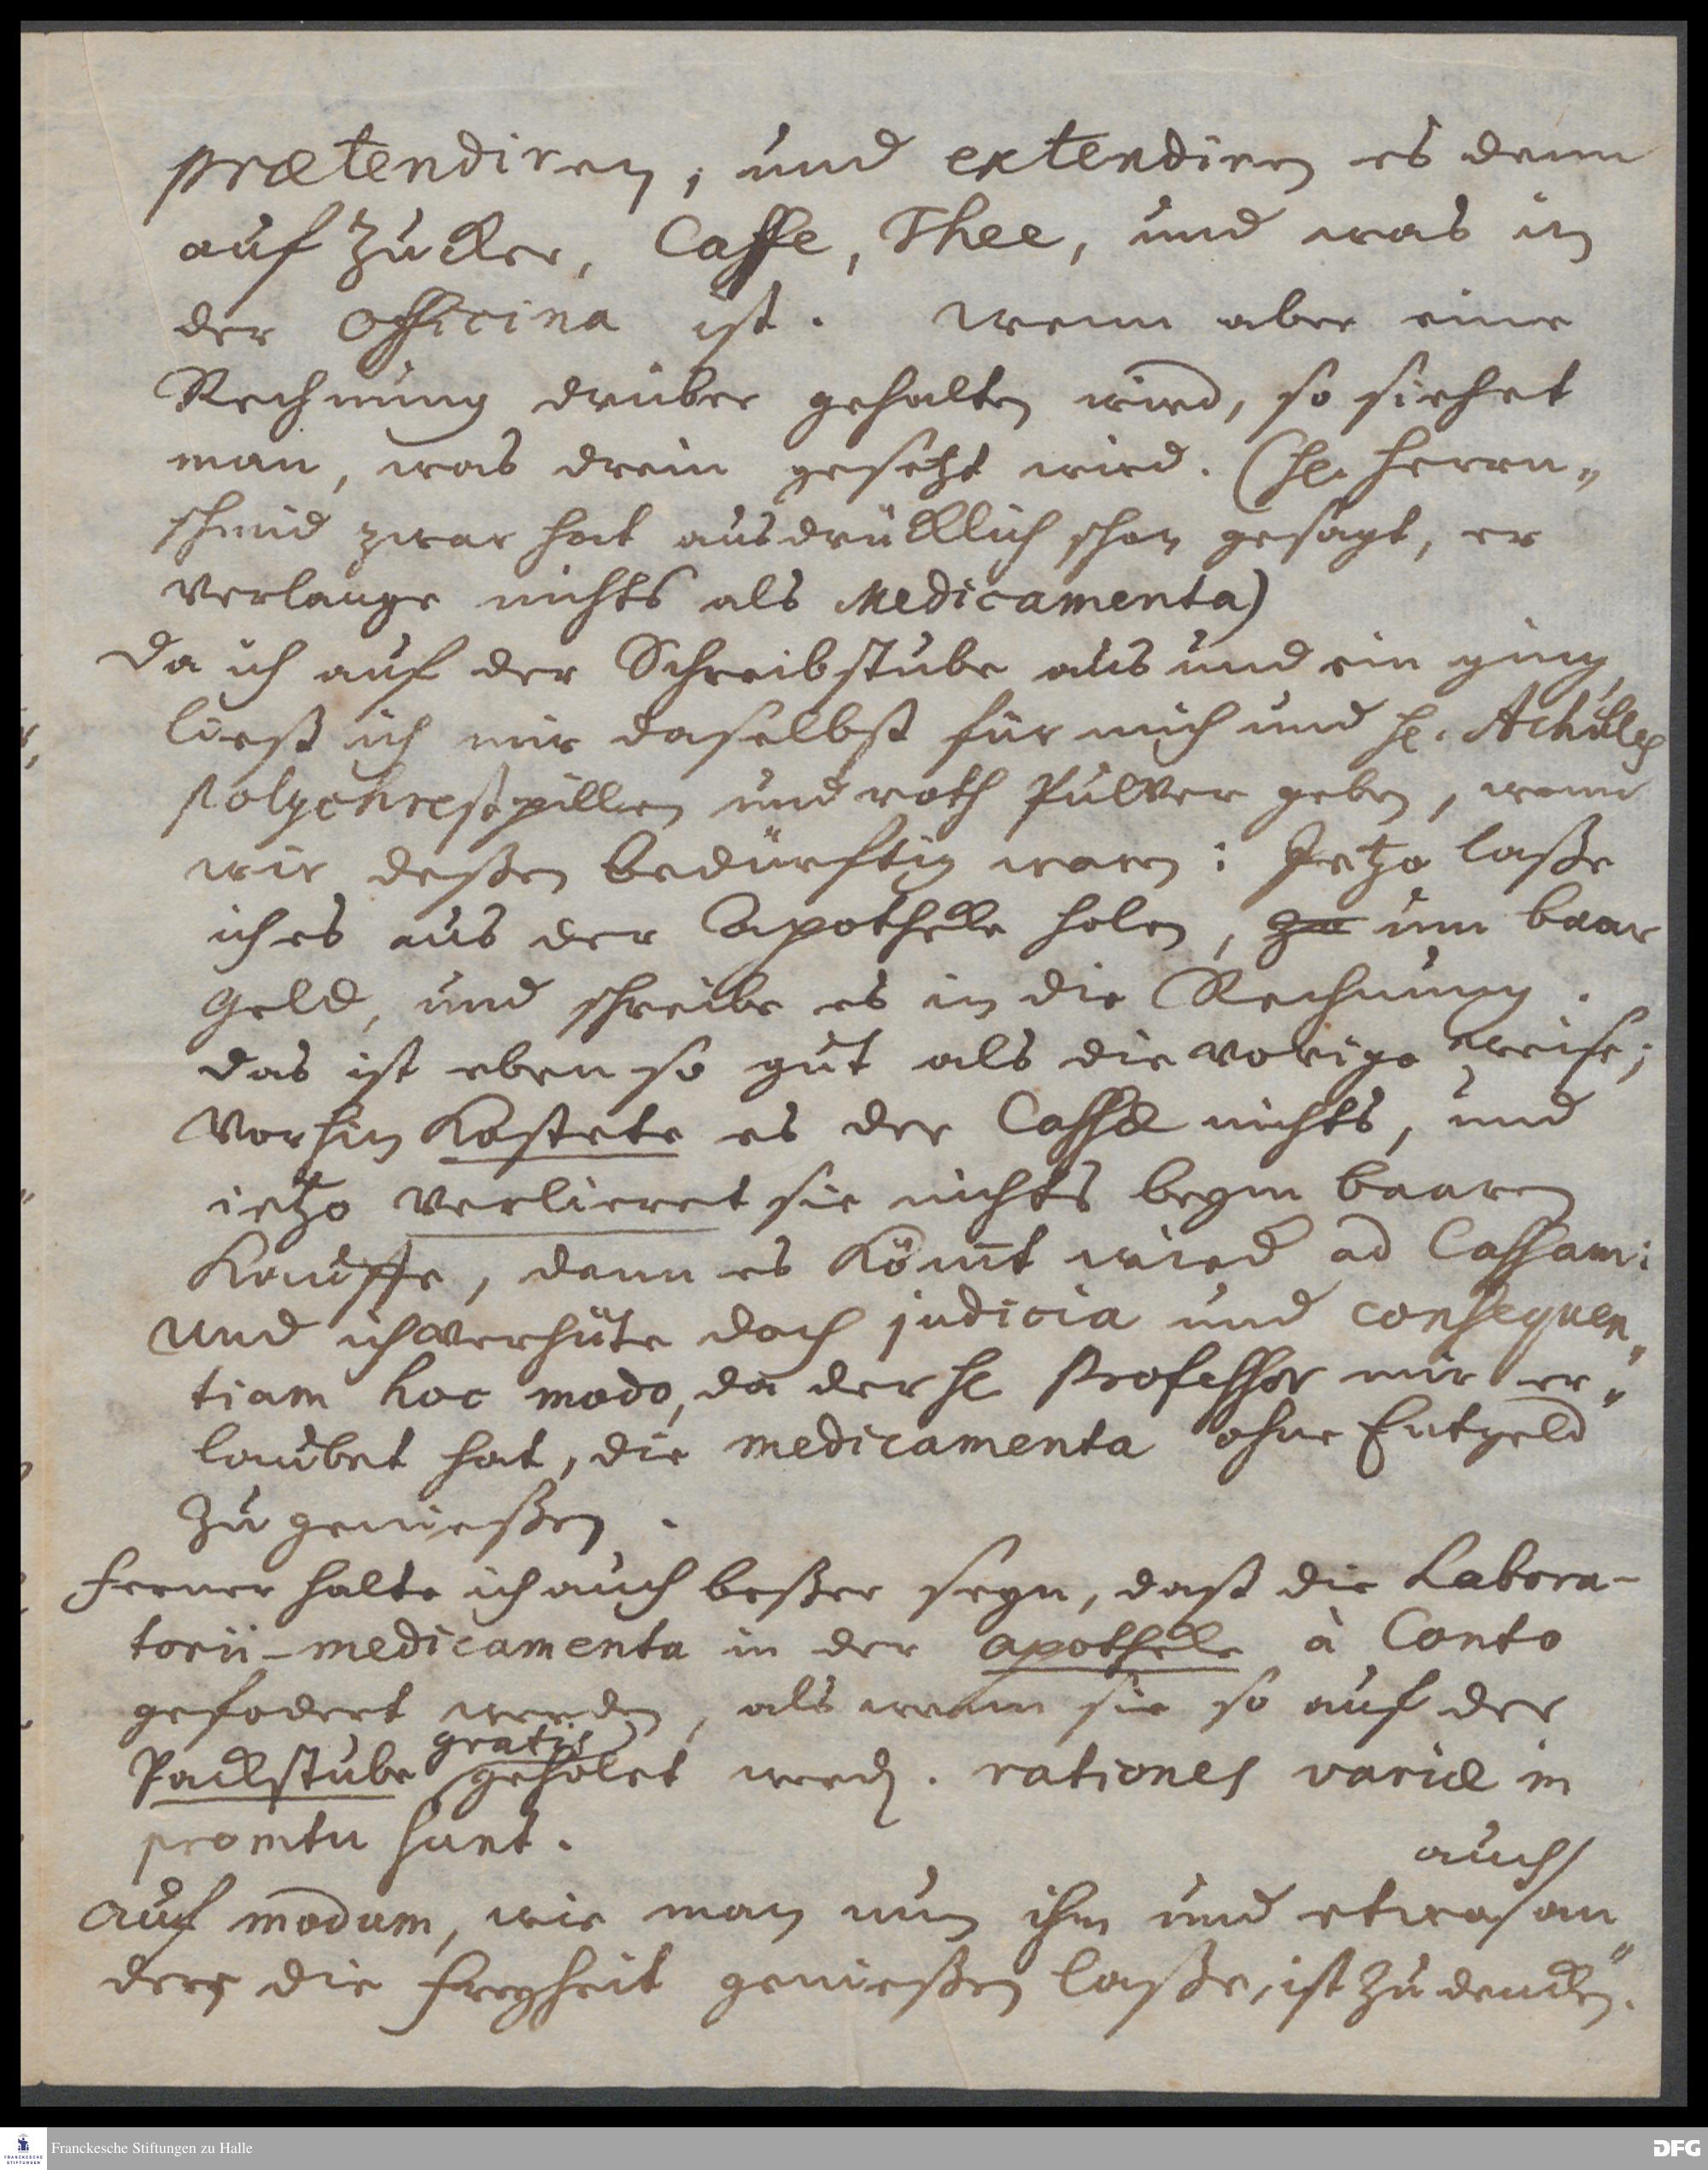 prætendiren, und extendiren es denn
auf Zucker, Caffe, Thee, und was in
der Officina ist. Wenn aber eine
Rechnung drüber gehalten wird, so siehet
man, was drein gesetzt wird. (H. Herrn„
schmid zwar hat ausdrücklich schon gesagt, er
verlange nichts als Medicamenta)
Da ich auf der Schreibstube aus und ein ging,
ließ ich mir daselbst für mich und H. Achilles
Polychrestpillen und roth Pulver geben, wenn
wir deßen bedürftig waren: Jetzo laße
ich es aus der Apotheke holen, um baar
Geld, und schreibe es in die Rechnung.
das ist eben so gut als die vorige weise;
Vorhin kostete es der Cassæ nichts, und
ietzo verlieret sie nichts beym baaren
Kauffe, denn es kömt wied ad Cassam:
Und ich verhüte doch judicia und consequen„
tiam hoc modo, da der H Professor mir er„
laubet hat, die medicamenta ohne Entgeld
zu genießen.
Ferner halte ich auch beßer seyn, daß die Labora-
torii-medicamenta in der Apotheke à Conto
gefodert werden, als wenn sie so auf der
gratis
Packstube geholet werdn. rationes variæ in
promtu sunt.
auch
Auf modum, wie man nun ihm und etwas an„
ders die Freyheit genießen laße, ist zu dencken.
Franckesche Stiftungen zu Halle
FRANCKESCHE STIFTUNGEN
DFG